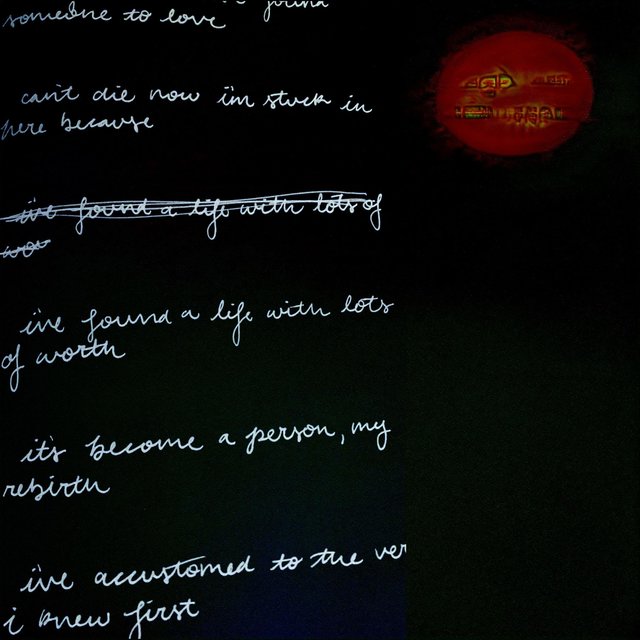 found
someone to love
can't die now i'm stuck in
here because
i've found a life with lots of
wor
i've found a life with lots
of worth
it's become a person, my
rebirth
i've accustomed to the ver
i knew first